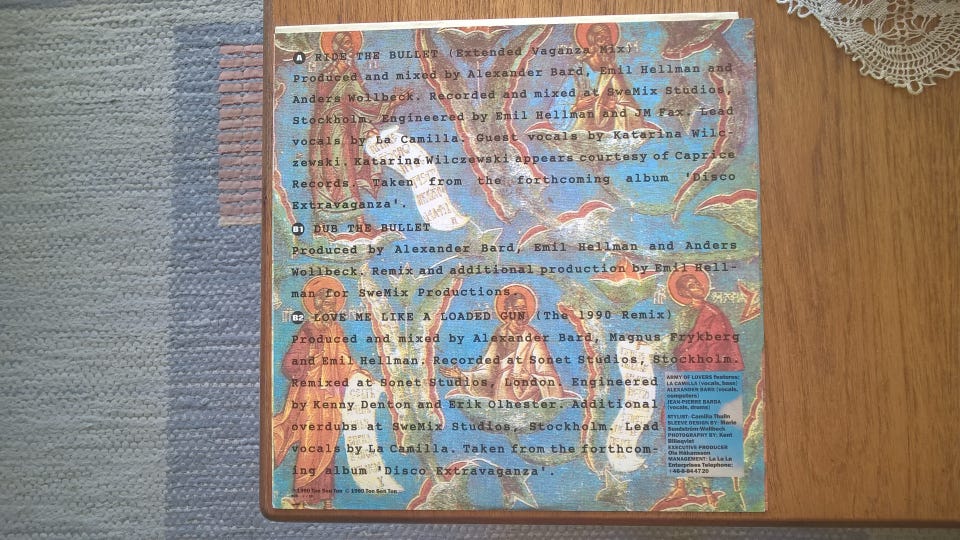 A RIDE THE BULLET (Extended Vaganza Mix)
Produced and mixed by Alexander Bard, Emil Hellman and
Anders Wollbeck. Recorded and mixed at SweMix Studios,
Stockholm. Engineered by Emil Hellman and JM Fax. Lead
vocals by La Camilla. Guest vocals by Katarina Wilc-
zewski. Katarina Wilczewski appears courtesy of Caprice
Records. Taken from the forthcoming album 'Disco
Extravaganza'.
B1 DUB THE BULLET
Produced by Alexander Bard, Emil Hellman and Anders
Wollbeck. Remix and additional production by Emil Hell-
man for SweMix Productions.
B2 LOVE ME LIKE A LOADED GUN (The 1990 Remix)
Produced and mixed by Alexander Bard, Magnus Frykberg
and Emil Hellman. Recorded at Sonet Studios, Stockholm.
Remixed at Sonet Studios, London. Engineered
by Kenny Denton and Erik Olhester. Additional
overdubs at SweMix Studios, Stockholm. Lead
vocals by La Camilla. Taken from the forthcom-
ing album 'Disco Extravaganza'.
ARMY OF LOVERS features:
LA CAMILLA (vocals, bass)
ALEXANDER BARD (vocals,
computers)
JEAN-PIERRE BARDA
(vocals, drums)
STYLIST: Camilla Thulin
SLEEVE DESIGN BY: Marie
Sundström-Wollbeck
PHOTOGRAPHY BY: Kent
Billeqvist
EXECUTIVE PRODUCER
Ola Håkansson
MANAGEMENT: La La La
Enterprises Telephone:
+46-8-84 47 20
℗ 1990 Ton Son Ton © 1990 Ton Son Ton